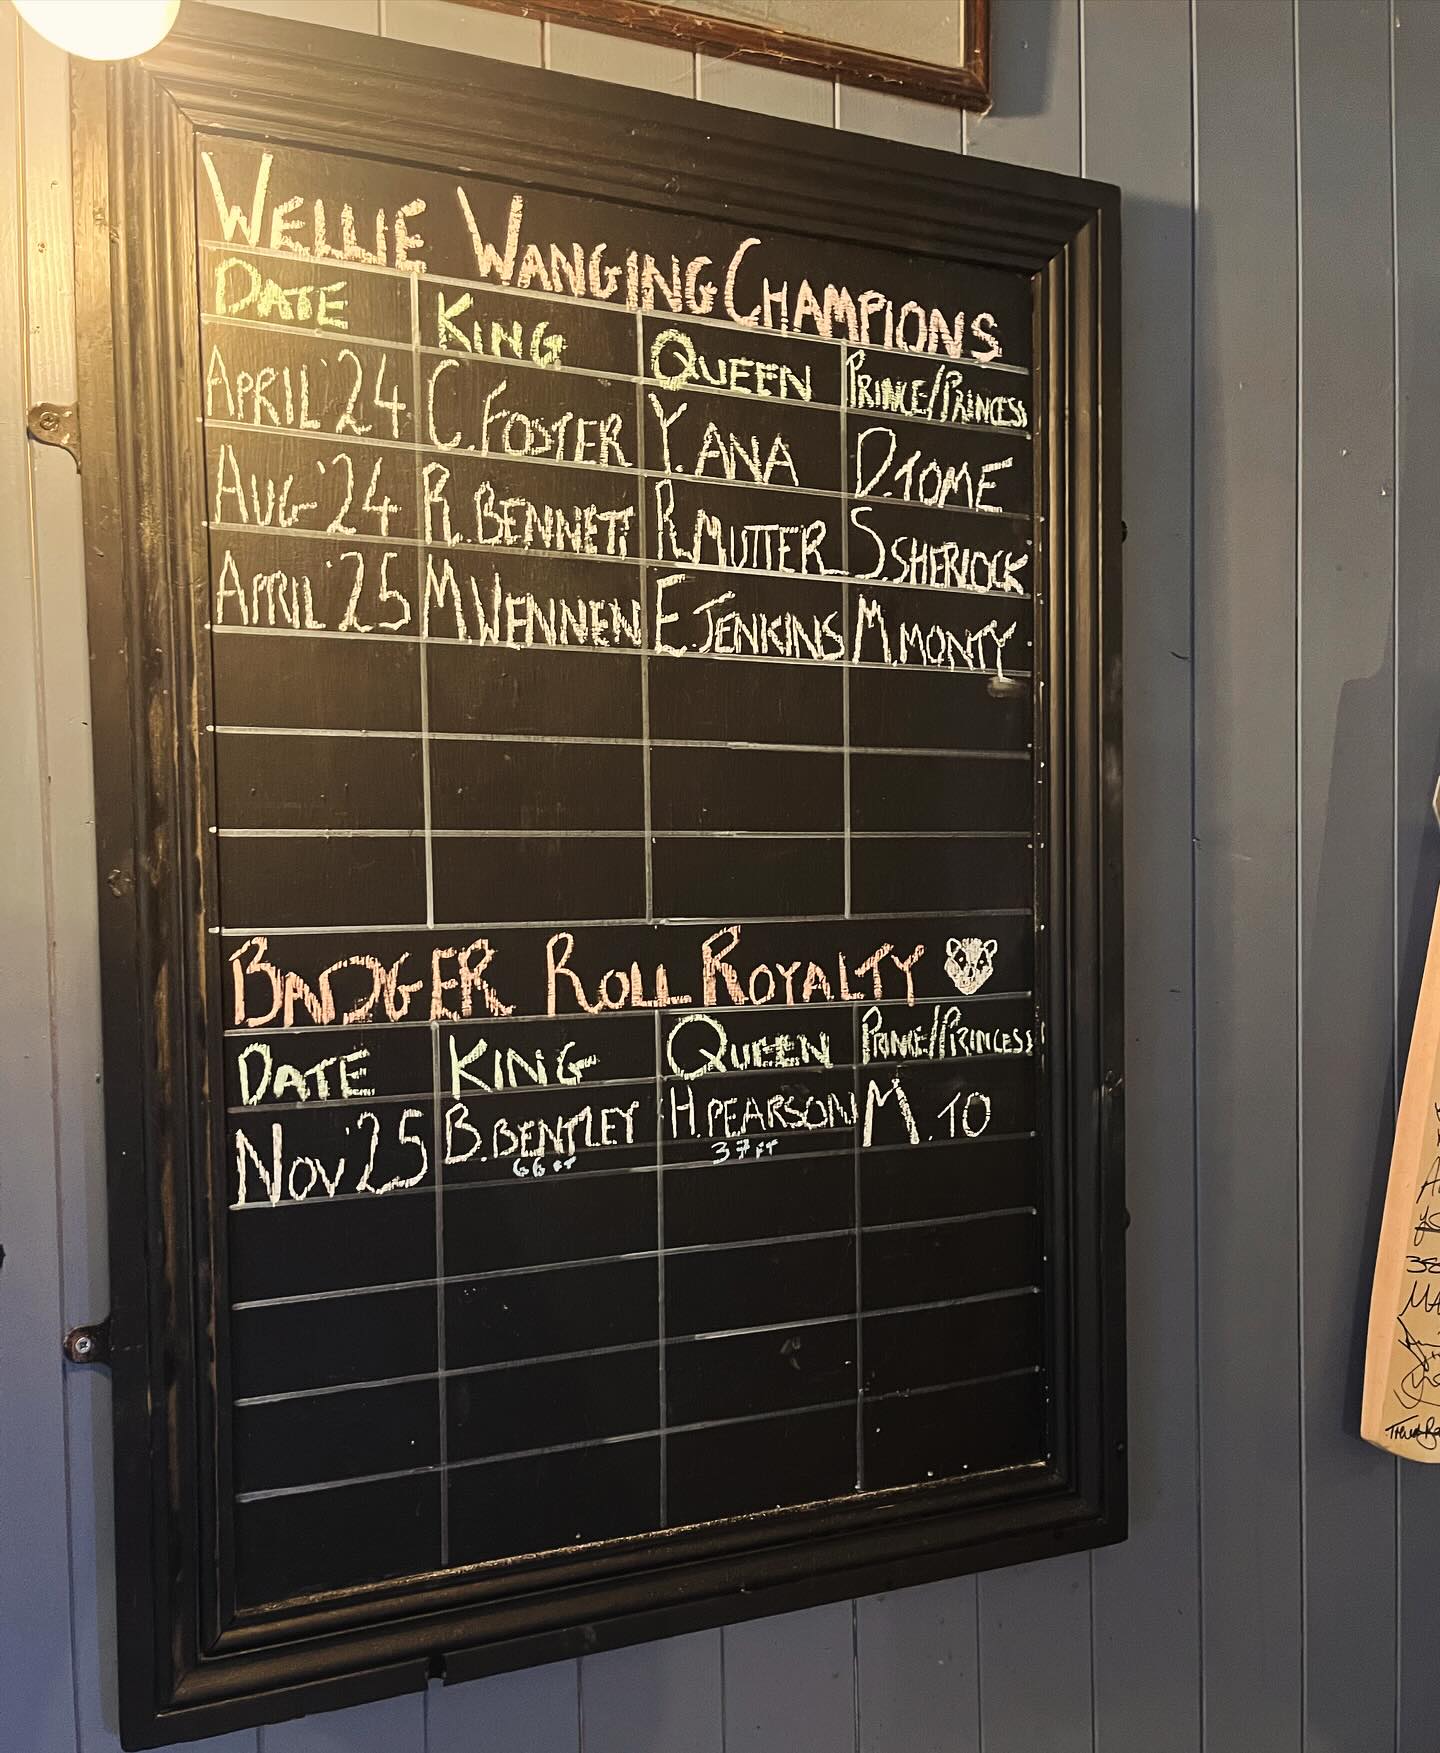 WELLIE WANGING CHAMPIONS
DATE KING QUEEN PRINCE/PRINCESS
APRIL '24 C. FOSTER Y. ANA D. TOME
AUG '24 R. BENNETT R. MUTTER S. SHERLOCK
APRIL '25 M WENNEN E. JENKINS M. MONTY
BADGER ROLL ROYALTY
DATE KING QUEEN PRINCE/PRINCESS
NOV '25 B. BENTLEY H. PEARSON M. TO
66 FT 37 FT